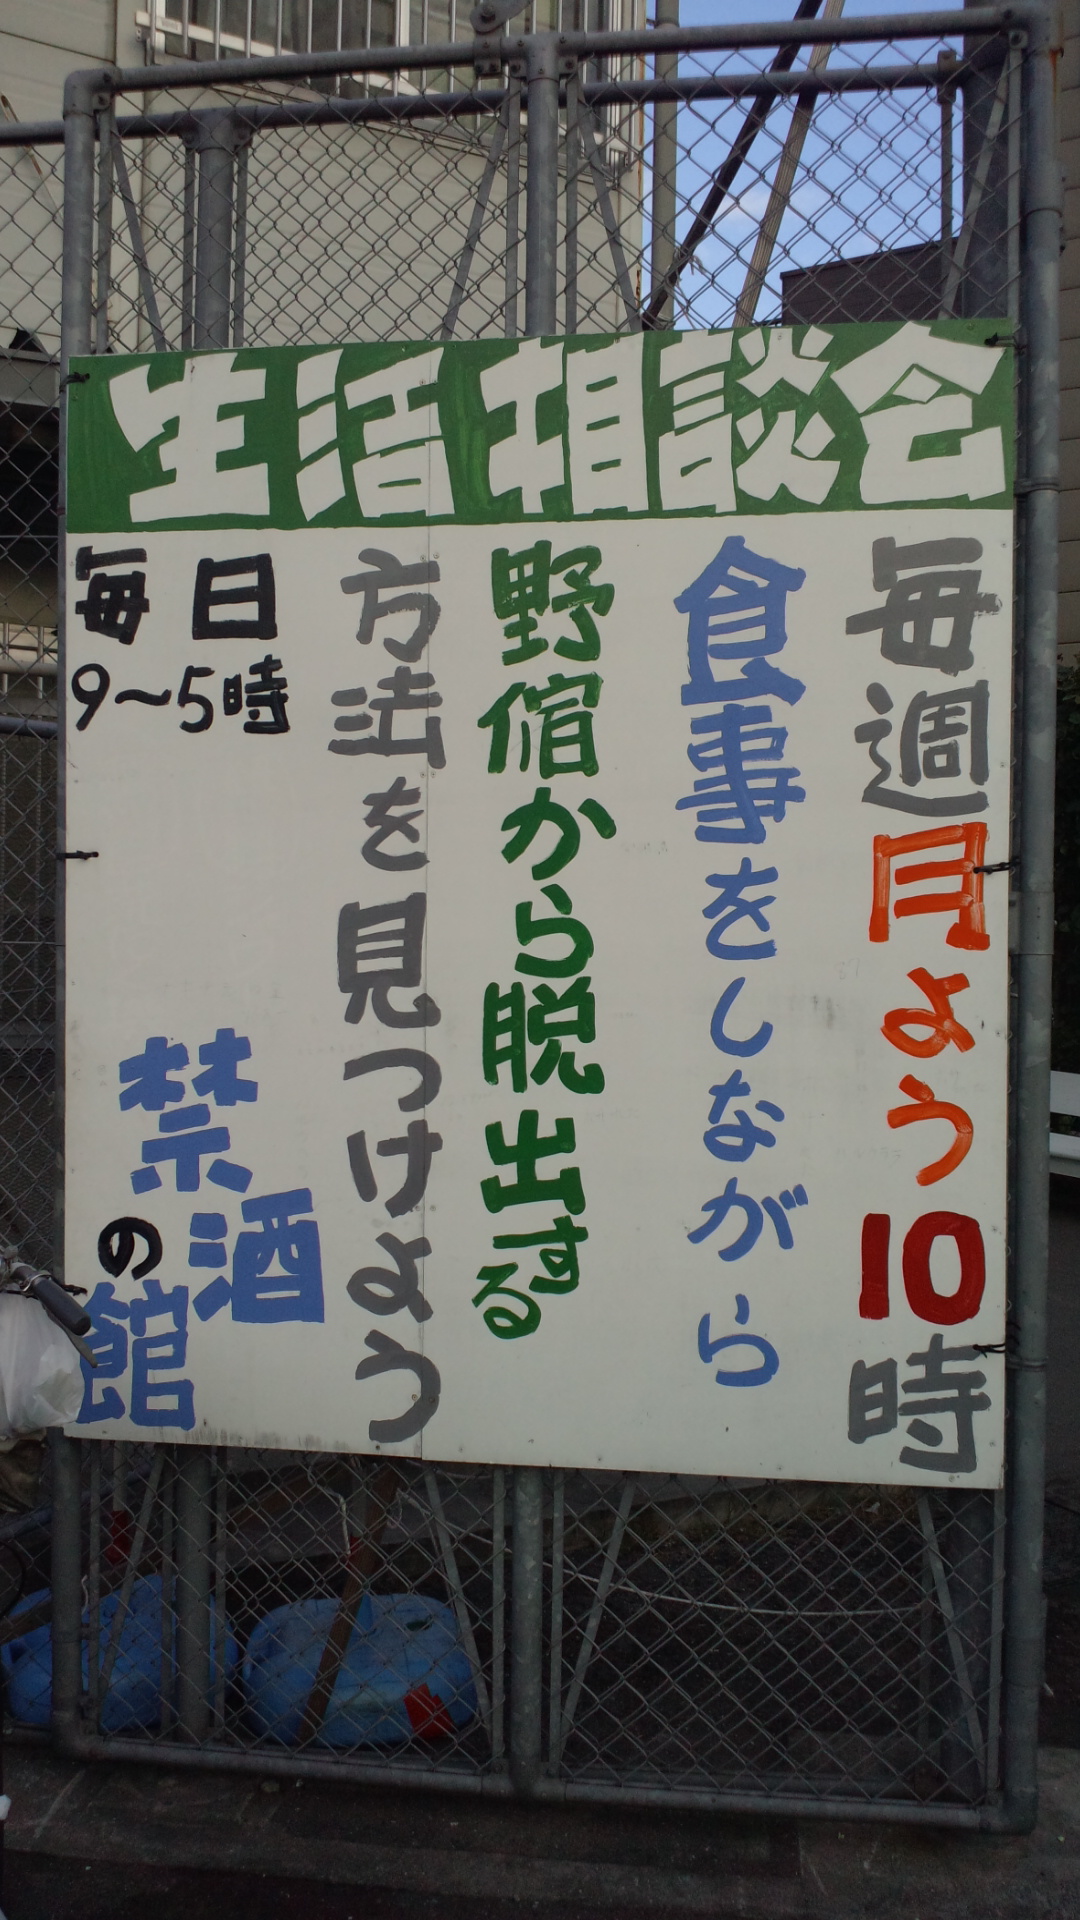 生活相談会
毎週月よう10時
食事をしながら
野宿から脱出する
方法を見つけよう
毎日
9〜5時
禁酒
の館